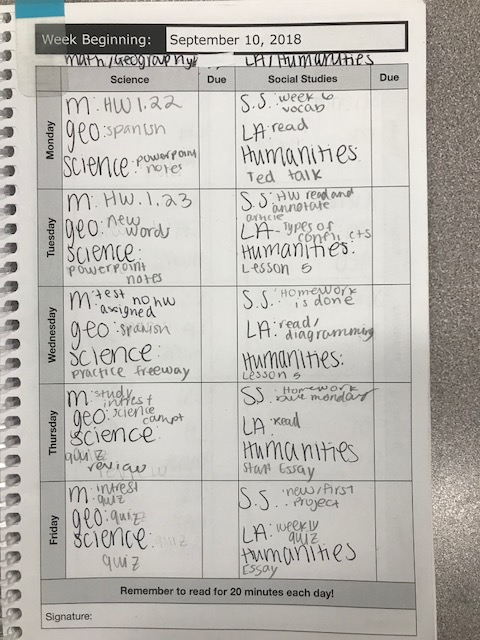 Week Beginning: September 10, 2018
math/Geography LA/Humanities
Science Due Social Studies Due
Monday
m: HW 1.22
geo: spanish
science: powerpoint
notes
S.S: week 6
vocab
LA: read
Humanities
Ted talk
Tuesday
m: HW. 1.23
geo: new
words
science:
powerpoint
notes
S.S: HW read and
annotate
article
LA- Types of
conflicts
Humanities:
Lesson 5
Wednesday
m: test no hw
assigned
geo: spanish
science:
practice freeway
S.S: Homework
is done
LA: read/
diagramming
Humanities:
Lesson 5
Thursday
m: study
intrest
geo: science
science
quiz
review
SS: Homework
due monday
LA: read
Humanities
Start Essay
Friday
m: intrest
quiz
geo: quiz
science: quiz
quiz
S.S: new/first
project
LA: weekly
quiz
Humanities
Essay
Remember to read for 20 minutes each day!
Signature: